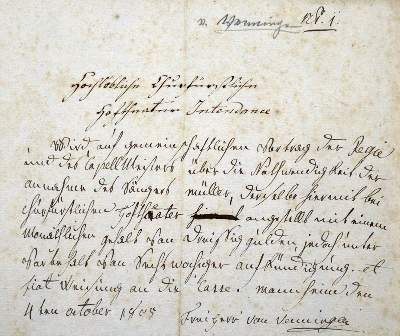 v. Venningen N.º 1.
Hochlöbliche Churfürstliche
Hoftheater Intendance
Wird auf gemeinschaftlichen Vortrag der Regie
und des CapellMeisters über die Nothwendigkeit der
annahme des Sängers Müller, derselbe hiermit bei
Churfürstlichem Hoftheater angestellt mit einem
Monathlichen gehalt von Dreissig gulden jedoch unter
Vorbehalt von Sechswochiger aufkündigung. et
fiat Weisung an die Casse. Mannheim den
4ten october 1805 Freiherr von Venningen